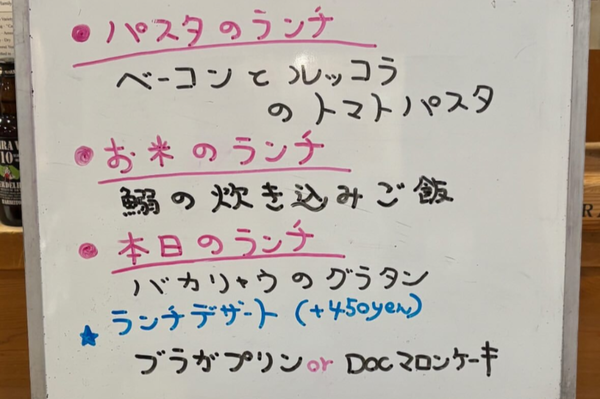 ● パスタのランチ
ベーコンとルッコラ
のトマトパスタ
● お米のランチ
鰯の炊き込みご飯
● 本日のランチ
バカリャウのグラタン
★ ランチデザート (+450yen)
ブラガプリン or DOCマロンケーキ